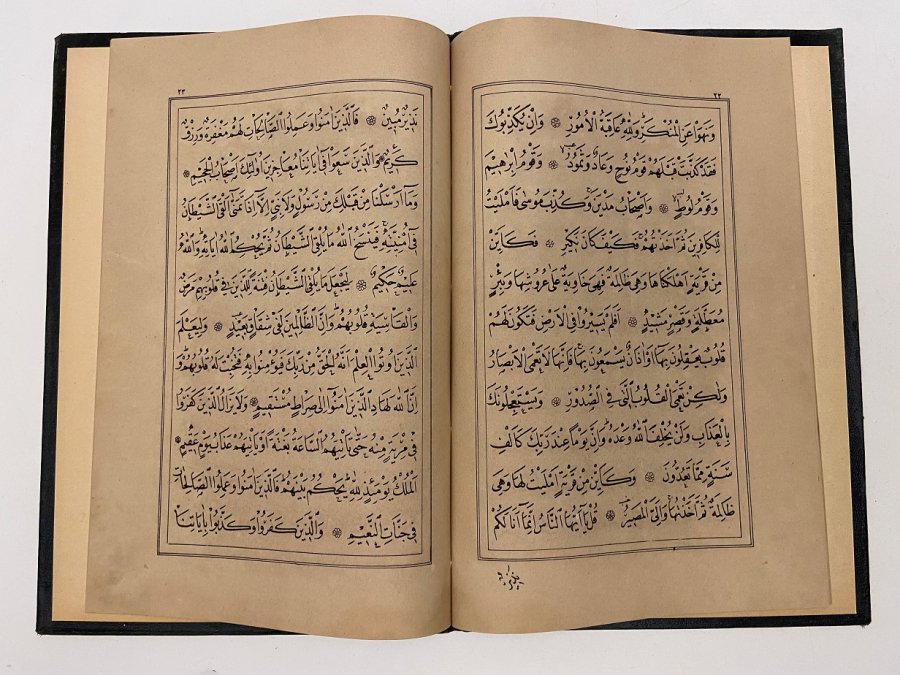 ٢٢
وَنَهَوْا عَنِ الْمُنْكَرِ وَلِلّٰهِ عَاقِبَةُ الْاُمُورِ ۞ وَاِنْ يُكَذِّبُوكَ
فَقَدْ كَذَّبَتْ قَبْلَهُمْ قَوْمُ نُوحٍ وَعَادٌ وَثَمُودُ ۞ وَقَوْمُ اِبْرٰهِيمَ
وَقَوْمُ لُوطٍ ۞ وَاَصْحَابُ مَدْيَنَ وَكُذِّبَ مُوسٰى فَاَمْلَيْتُ
لِلْكَافِرِينَ ثُمَّ اَخَذْتُهُمْ فَكَيْفَ كَانَ نَكِيرِ ۞ فَكَاَيِّنْ
مِنْ قَرْيَةٍ اَهْلَكْنَاهَا وَهِيَ ظَالِمَةٌ فَهِيَ خَاوِيَةٌ عَلٰى عُرُوشِهَا وَبِئْرٍ
مُعَطَّلَةٍ وَقَصْرٍ مَشِيدٍ ۞ اَفَلَمْ يَسِيرُوا فِي الْاَرْضِ فَتَكُونَ لَهُمْ
قُلُوبٌ يَعْقِلُونَ بِهَا اَوْ اٰذَانٌ يَسْمَعُونَ بِهَا فَاِنَّهَا لَا تَعْمَى الْاَبْصَارُ
وَلٰكِنْ تَعْمَى الْقُلُوبُ الَّتِي فِي الصُّدُورِ ۞ وَيَسْتَعْجِلُونَكَ
بِالْعَذَابِ وَلَنْ يُخْلِفَ اللّٰهُ وَعْدَهُ وَاِنَّ يَوْمًا عِنْدَ رَبِّكَ كَاَلْفِ
سَنَةٍ مِمَّا تَعُدُّونَ ۞ وَكَاَيِّنْ مِنْ قَرْيَةٍ اَمْلَيْتُ لَهَا وَهِيَ
ظَالِمَةٌ ثُمَّ اَخَذْتُهَا وَاِلَيَّ الْمَصِيرُ ۞ قُلْ يَا اَيُّهَا النَّاسُ اِنَّمَا اَنَا لَكُمْ
٢٣
نَذِيرٌ مُبِينٌ ۞ فَالَّذِينَ اٰمَنُوا وَعَمِلُوا الصَّالِحَاتِ لَهُمْ مَغْفِرَةٌ وَرِزْقٌ
كَرِيمٌ ۞ وَالَّذِينَ سَعَوْا فِي اٰيَاتِنَا مُعَاجِزِينَ اُولٰئِكَ اَصْحَابُ الْجَحِيمِ ۞
وَمَا اَرْسَلْنَا مِنْ قَبْلِكَ مِنْ رَسُولٍ وَلَا نَبِيٍّ اِلَّا اِذَا تَمَنّٰى اَلْقَى الشَّيْطَانُ
فِي اُمْنِيَّتِهِ فَيَنْسَخُ اللّٰهُ مَا يُلْقِي الشَّيْطَانُ ثُمَّ يُحْكِمُ اللّٰهُ اٰيَاتِهِ وَاللّٰهُ
عَلِيمٌ حَكِيمٌ ۞ لِيَجْعَلَ مَا يُلْقِي الشَّيْطَانُ فِتْنَةً لِلَّذِينَ فِي قُلُوبِهِمْ مَرَضٌ
وَالْقَاسِيَةِ قُلُوبُهُمْ وَاِنَّ الظَّالِمِينَ لَفِي شِقَاقٍ بَعِيدٍ ۞ وَلِيَعْلَمَ
الَّذِينَ اُوتُوا الْعِلْمَ اَنَّهُ الْحَقُّ مِنْ رَبِّكَ فَيُؤْمِنُوا بِهِ فَتُخْبِتَ لَهُ قُلُوبُهُمْ وَ
اِنَّ اللّٰهَ لَهَادِ الَّذِينَ اٰمَنُوا اِلٰى صِرَاطٍ مُسْتَقِيمٍ ۞ وَلَا يَزَالُ الَّذِينَ كَفَرُوا
فِي مِرْيَةٍ مِنْهُ حَتّٰى تَاْتِيَهُمُ السَّاعَةُ بَغْتَةً اَوْ يَاْتِيَهُمْ عَذَابُ يَوْمٍ عَقِيمٍ ۞
اَلْمُلْكُ يَوْمَئِذٍ لِلّٰهِ يَحْكُمُ بَيْنَهُمْ فَالَّذِينَ اٰمَنُوا وَعَمِلُوا الصَّالِحَاتِ
فِي جَنَّاتِ النَّعِيمِ ۞ وَالَّذِينَ كَفَرُوا وَكَذَّبُوا بِاٰيَاتِنَا